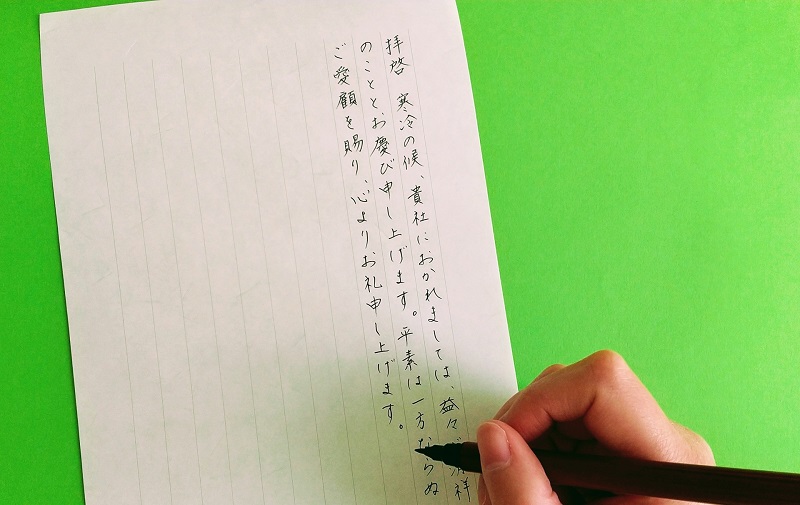 拝啓　寒冷の候、貴社におかれましては、益々ご清祥
のこととお慶び申し上げます。平素は一方ならぬ
ご愛顧を賜り、心よりお礼申し上げます。